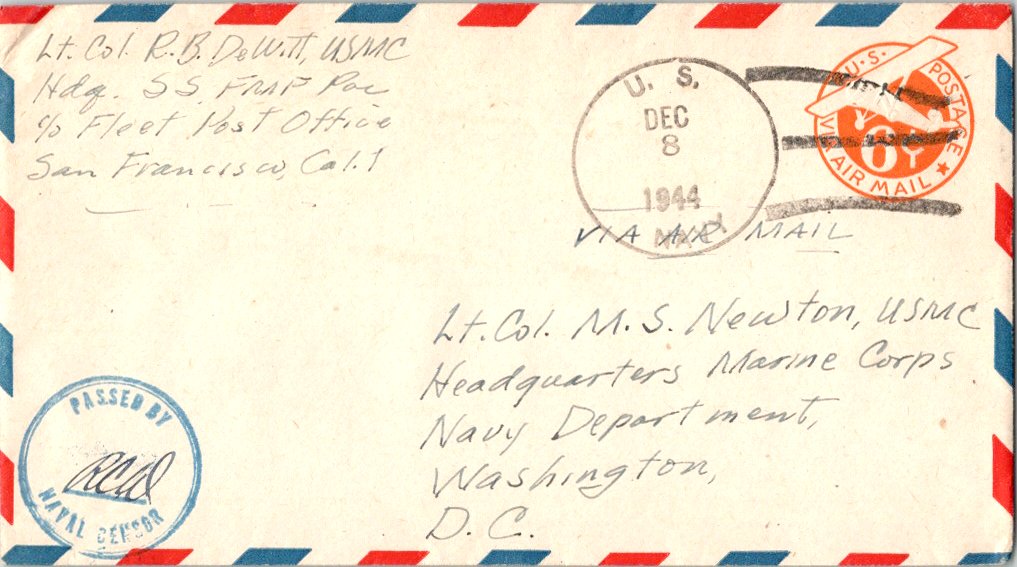 Lt. Col. R. B. DeWitt, USMC
Hdq. SS, FMF Pac
c/o Fleet Post Office
San Francisco, Calif
U. S.
DEC
8
1944
NAVY
U.S. POSTAGE
6¢
VIA AIR MAIL
VIA AIR MAIL
Lt. Col. M. S. Newton, USMC
Headquarters Marine Corps
Navy Department,
Washington,
D. C.
PASSED BY
NAVAL CENSOR